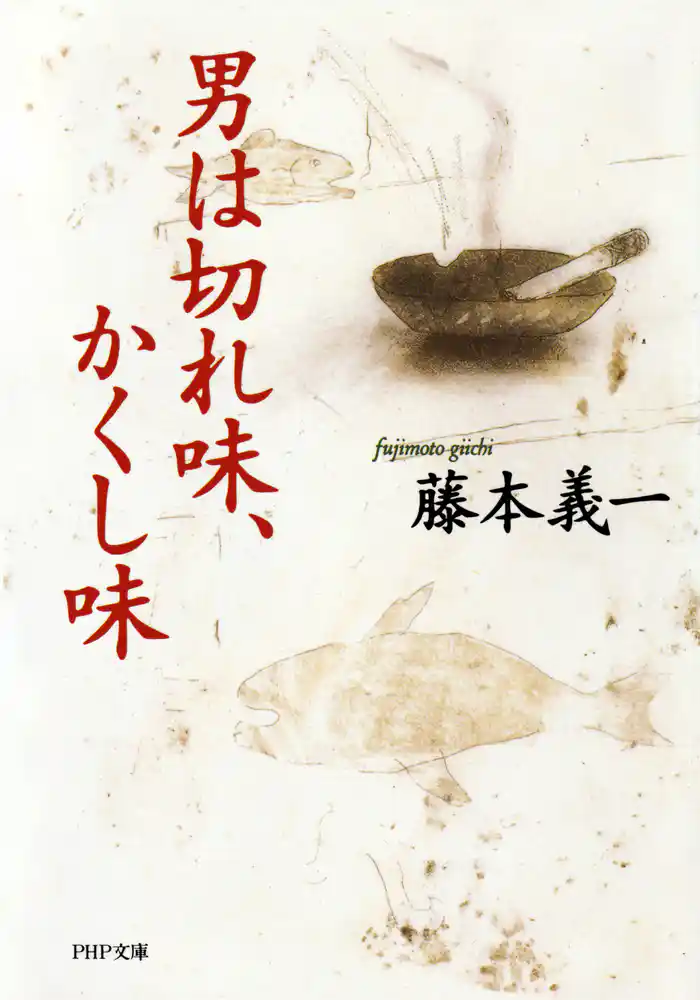 男は切れ味、
かくし味
fujimoto giichi
藤本義一
PHP文庫